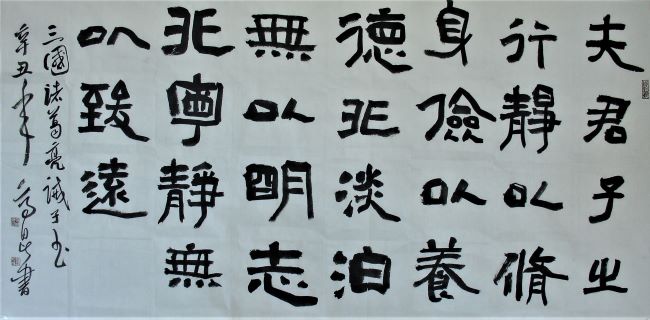 夫君子之
行靜以脩
身儉以養
德非淡泊
無以明志
非寧靜無
以致遠
三國諸葛亮誡子书
辛丑年書